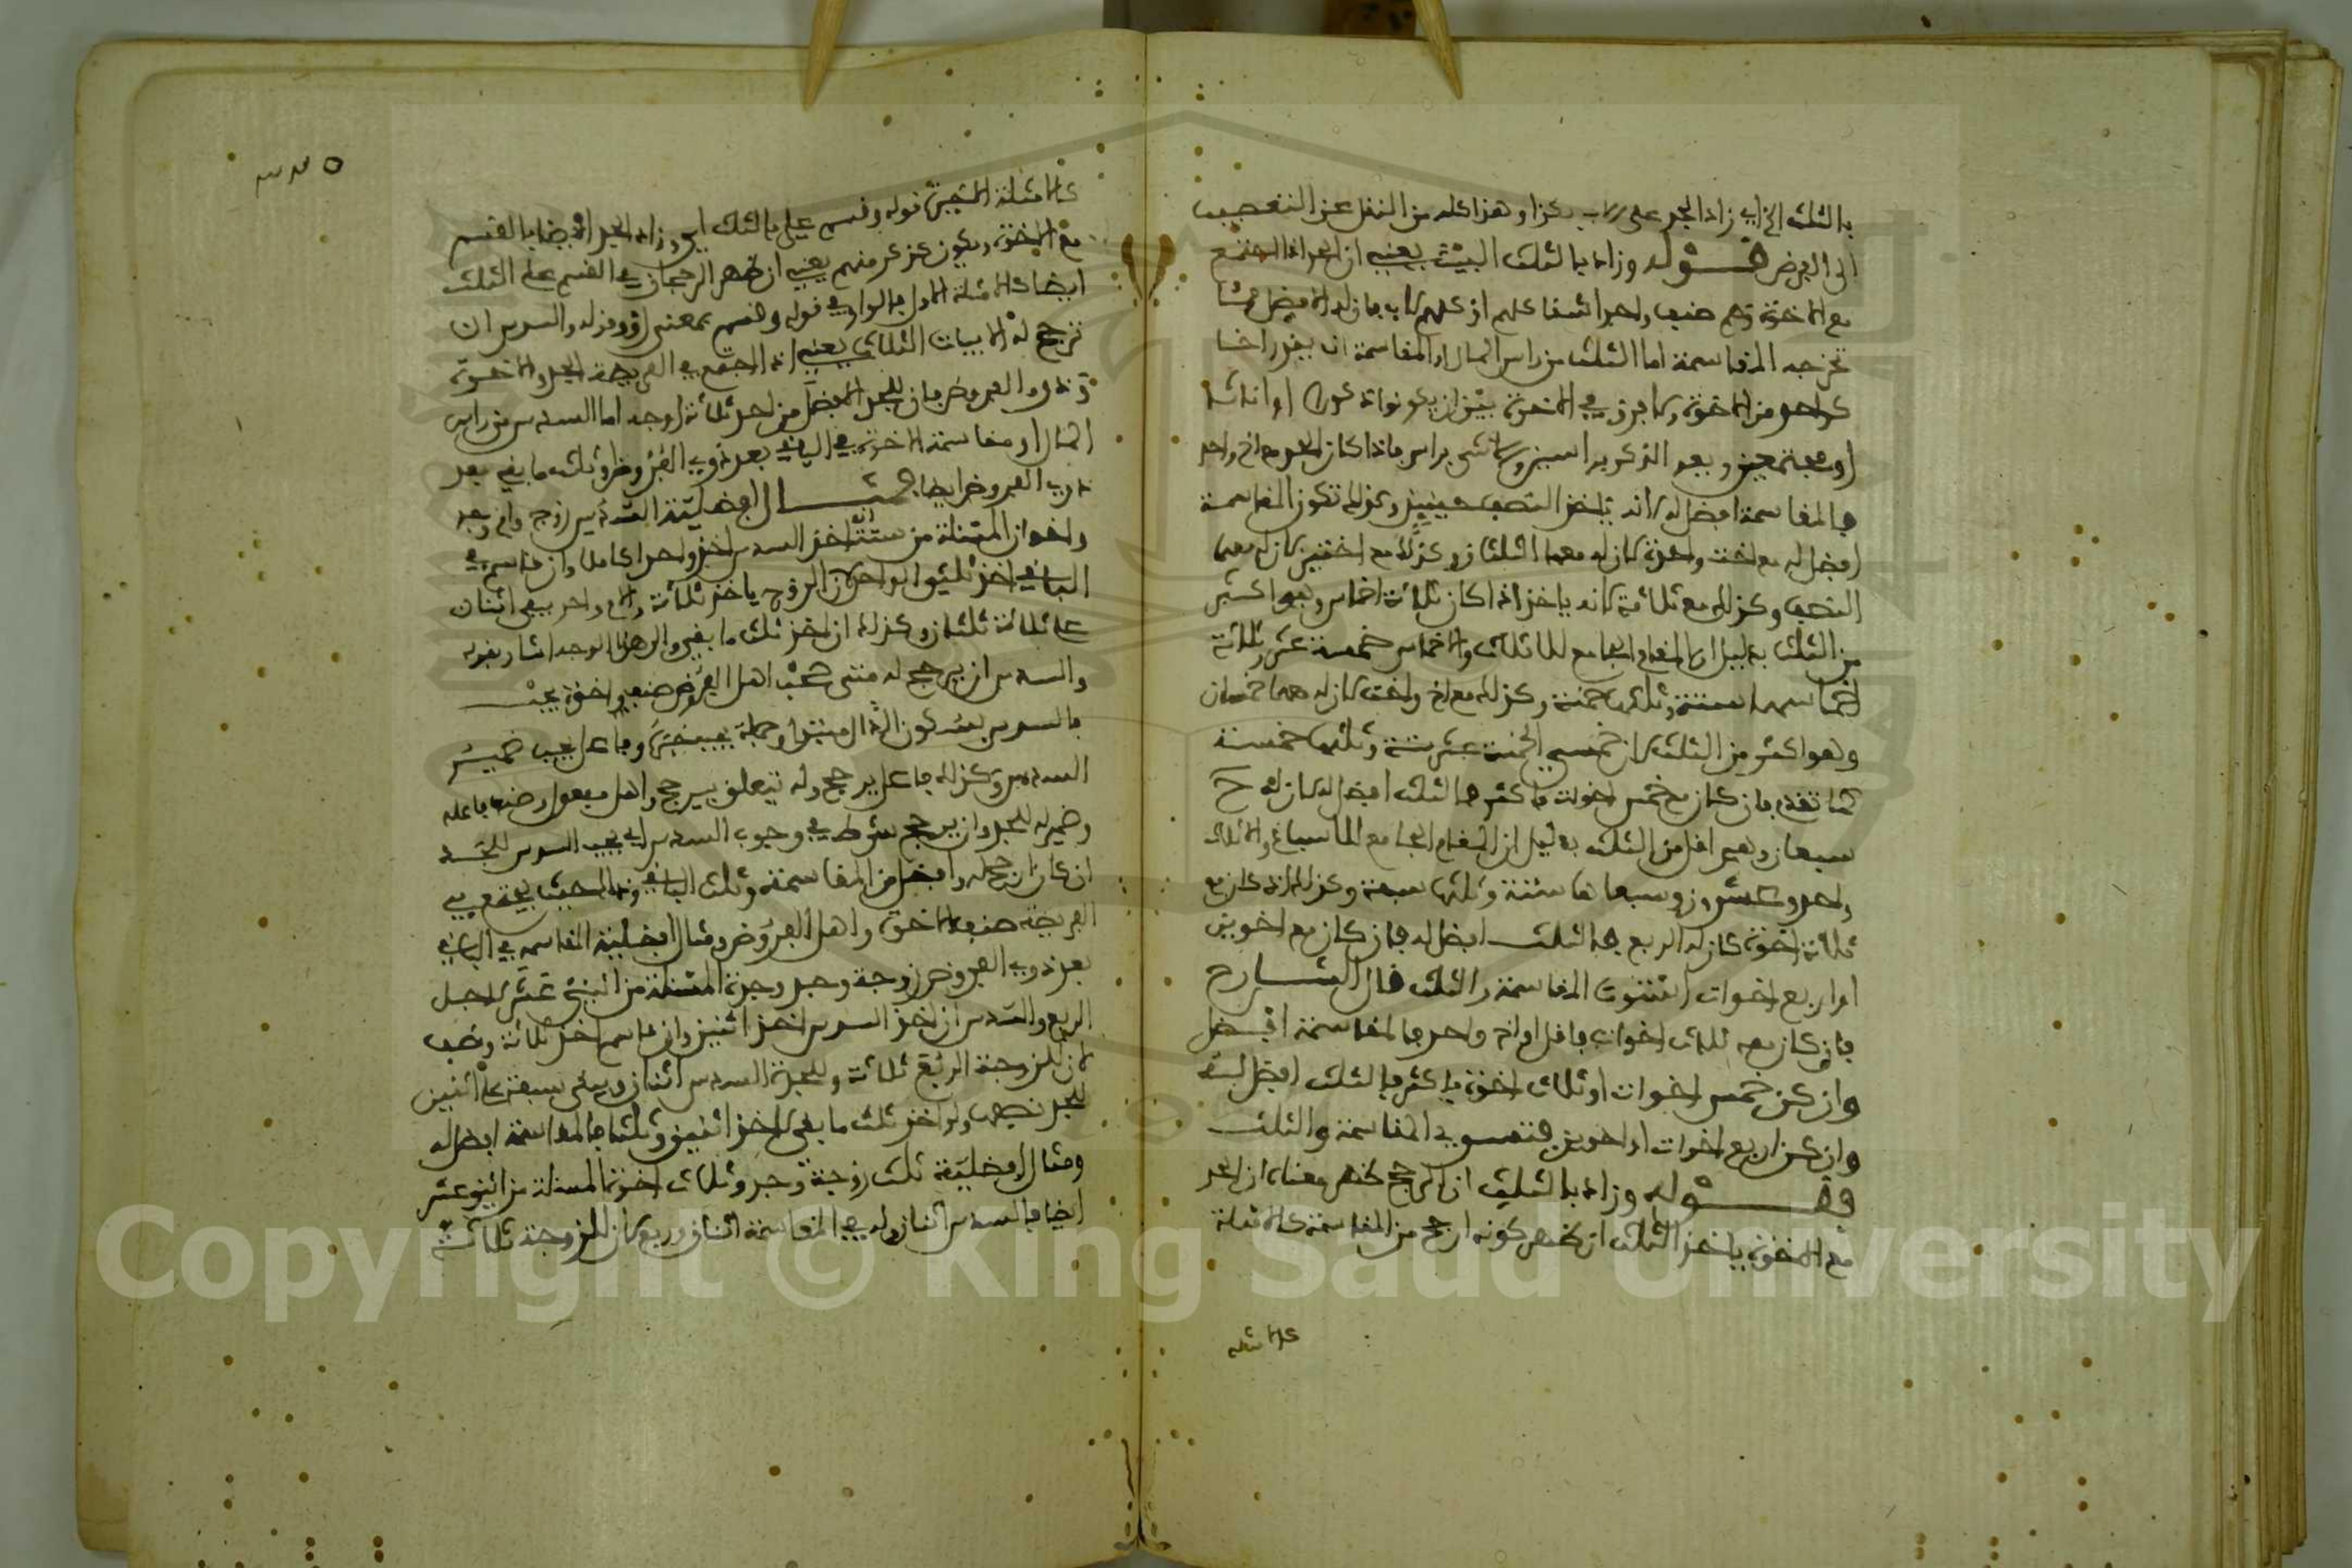 بالثلث الخ اي زاد الجد على الاب بكذا وهذا كله من النقل عن التعصيب
الى الفرض قوله وزاد بالثلث البيت يعني ان الجد اذا اجتمع
مع الاخوة وهم صنف واحد اشقا كلهم او كلهم لاب فان له الافضل
المقاسمة اما الثلث من راس المال او المقاسمة ان يقدر اخا
كواحد من الاخوة ولا فرق في الاخوة بين ان يكونوا ذكورا او اناثا
او مجتمعين ويعد الذكر براسين والانثى براس فاذا كان الجد مع اخ واحد
فالمقاسمة افضل له لانه ياخذ النصف حينئذ وكذلك تكون المقاسمة
افضل له مع اخت واحدة لان له معها الثلثان وكذلك مع اختين لان له معهما
النصف وكذلك مع ثلاثة لانه ياخذ اذا كان ثلاثة اخماس وهو اكثر
من الثلث بدليل ان المقام الجامع للاثلاث والاخماس خمسة عشر وثلاثة
اخماسها ستة وثلثها خمسة وكذلك مع اخ واخت لان له معهما خمسان
وهو اكثر من الثلث لان خمسي الخمسة عشر ستة وثلثها خمسة
كما تقدم فان كان مع خمس اخوات فاكثر فالثلث افضل له لان له ح
سبعان وهي اقل من الثلث بدليل ان المقام الجامع للاسباع والاثلاث
واحد وعشرون وسبعاها ستة وثلثها سبعة وكذلك اذا كان مع
ثلاثة اخوة لان له الربع فالثلث افضل له فان كان مع اخوين
او اربع اخوات استوت المقاسمة والثلث قال الشارح
فان كان معه ثلاث اخوات فاقل او اخ واحد فالمقاسمة افضل
وان كن خمس اخوات او ثلاث اخوة فاكثر فالثلث افضل له
وان كن اربع اخوات او اخوين فتستوي المقاسمة والثلث
وقوله وزاد بالثلث ان الرجح ظهر معناه ان الجد
مع الاخوة ياخذ الثلث ان ظهر كونه ارجح من المقاسمة كالامثلة
كالامثلة
كالامثلة الاخيرة قوله وقسم على بالثلث اي وزاد الجد ايضا بالقسم
مع الاخوة ويكون كذكر منهم يعني ان ظهر الرجحان في القسم على الثلث
ايضا كالامثلة الاول فالواو في قوله وقسم بمعنى او وقوله والسدس ان
ترجح له الابيات الثلاث يعني اذا اجتمع في الفريضة الجد والاخوة
وذوو الفروض فان للجد الافضل من احد ثلاثة اوجه اما السدس من راس
المال او مقاسمة الاخوة في الباقي بعد ذوي الفروض او ثلث ما بقي بعد
ذوي الفروض ايضا مثال افضلية السدس زوج وام وجد
واخوان المسئلة من ستة ان اخذ السدس اخذ واحدا كاملا وان قاسم في
الباقي اخذ ثلثي الواحد لان الزوج ياخذ ثلاثة والام واحد يبقى اثنان
على ثلاثة ثلثان وكذلك ان اخذ ثلث ما بقي والى هذا الوجه اشار بقوله
والسدس ان يرجح له متى صحب اهل الفروض صنف واخوة يجب
فالسدس بسكون الدال مبتدا وجملة يجب خبره وفاعل يجب ضمير
السدس وكذلك فاعل يرجح وله يتعلق بيرجح واهل مفعول وصنف فاعله
وضمير له للجد وان يرجح شرط في وجوب السدس اي يجب السدس للجد
ان كان ارجح له وافضل من المقاسمة وثلث الباقي وذلك حيث يجتمع في
الفريضة صنف الاخوة واهل الفروض ومثال افضلية المقاسمة في الباقي
بعد ذوي الفروض زوجة وجد وجدة المسئلة من اثني عشر لاجل
الربع والسدس ان اخذ السدس اخذ اثنين وان قاسم اخذ ثلاثة ونصف
لان للزوجة الربع ثلاثة وللجدة السدس اثنان ويبقى سبعة على اثنين
للجد نصفها ولو اخذ ثلث ما بقي لاخذ اثنين وثلثا فالمقاسمة افضل له
ومثال افضلية ثلث زوجة وجد وثلاث اخوة المسئلة من اثني عشر
ايضا فالسدس اثنان وله في المقاسمة اثنان وربع لان للزوجة ثلاثة
Copyright © King Saud University